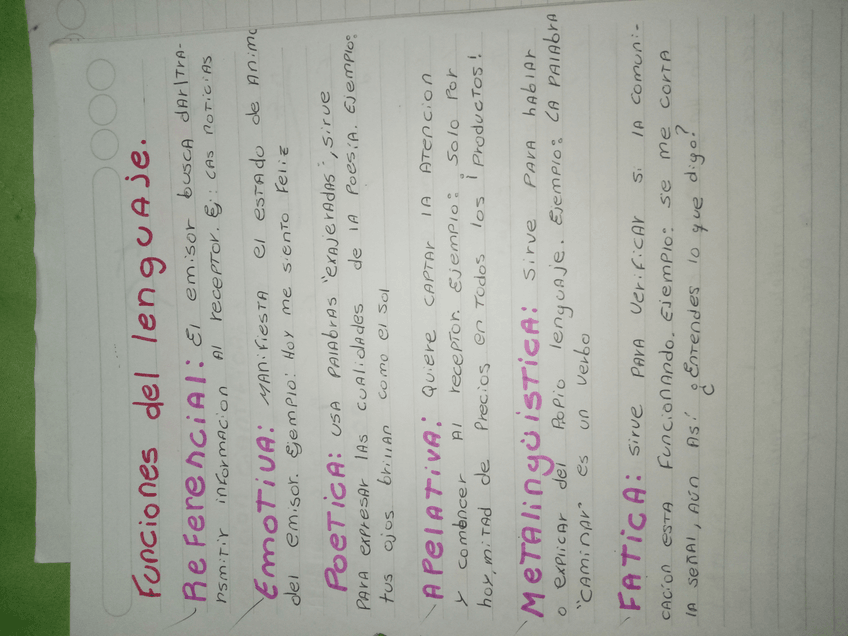 Funciones del lenguaje.
Referencial: El emisor busca dar/tra-
nsmitir informacion al receptor. Ej: Las noticias
Emotiva: Manifiesta el estado de animo
del emisor. Ejemplo: Hoy me siento feliz
Poetica: usa palabras "exajeradas", sirve
para expresar las cualidades de la poesía. Ejemplo:
tus ojos brillan como el sol
Apelativa: Quiere captar la atencion
y comencer al receptor. Ejemplo: Solo por
hoy, mitad de precios en todos los ¡productos!
Metalingüística: Sirve para hablar
o explicar del propio lenguaje. Ejemplo: La palabra
"caminar" es un verbo
Fatica: sirve para verificar si la comuni-
cacion esta funcionando. Ejemplo: se me corta
la señal, aún así ¿entendes lo que digo?